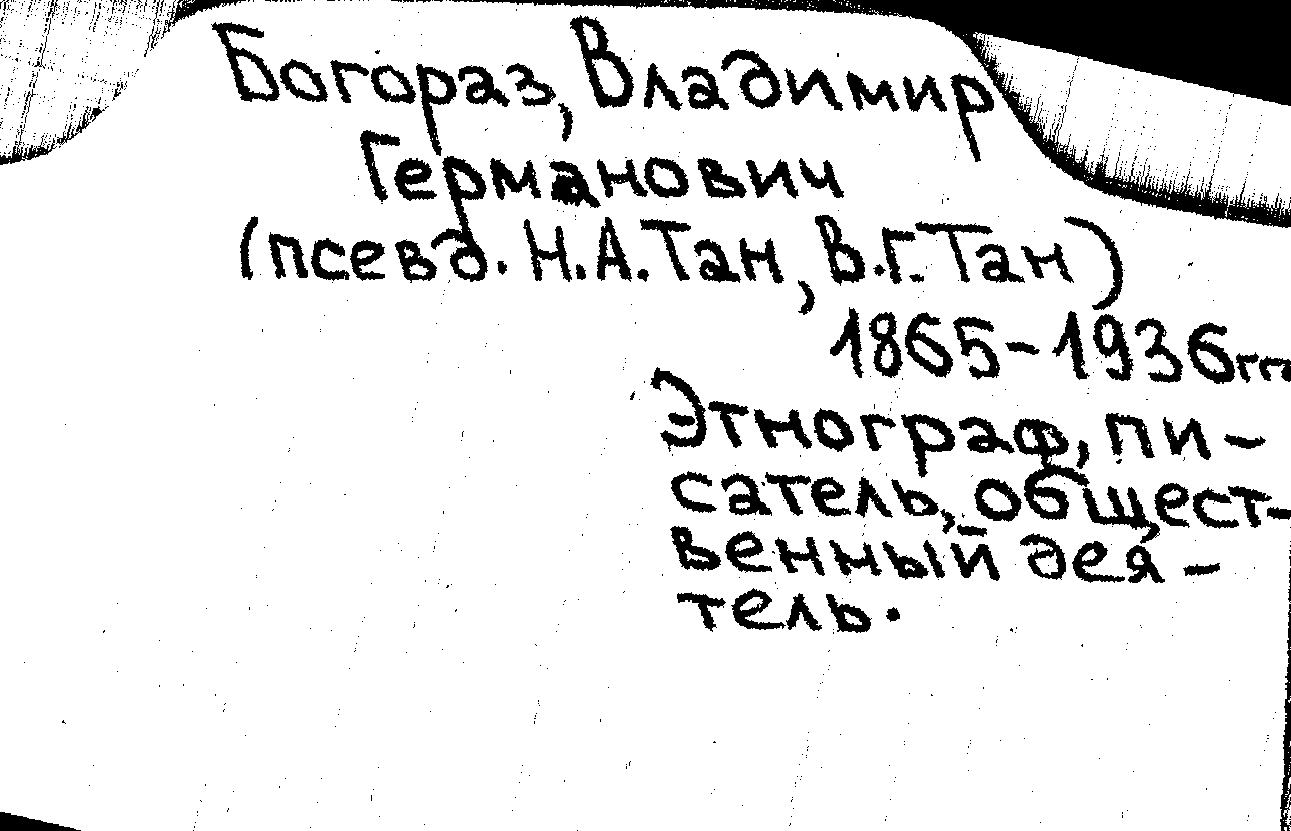 Богораз, Владимир
Германович
(псевд. Н.А.Тан, В.Г.Тан)
1865-1936гг
Этнограф, пи-
сатель, общест-
венный дея-
тель.